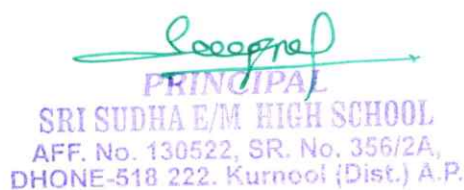 PRINCIPAL
SRI SUDHA E/M HIGH SCHOOL
AFF. No. 130522, SR. No. 356/2A,
DHONE-518 222. Kurnool (Dist.) A.P.